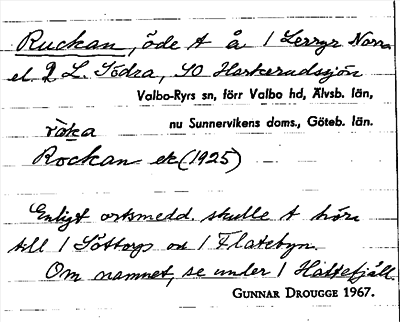 Ruckan, öde t å 1 Lerryr Norra
el. 2 L. Södra, SO Harkerudssjön
Valbo-Ryrs sn, förr Valbo hd, Älvsb. län,
nu Sunnervikens doms., Göteb. län.
råka
Rockan ek (1925)
Enligt ortsmedd. skulle t höra
till 1 Söttorp o 1 Flatebyn.
Om namnet, se under 1 Håltefjäll.
GUNNAR DROUGGE 1967.